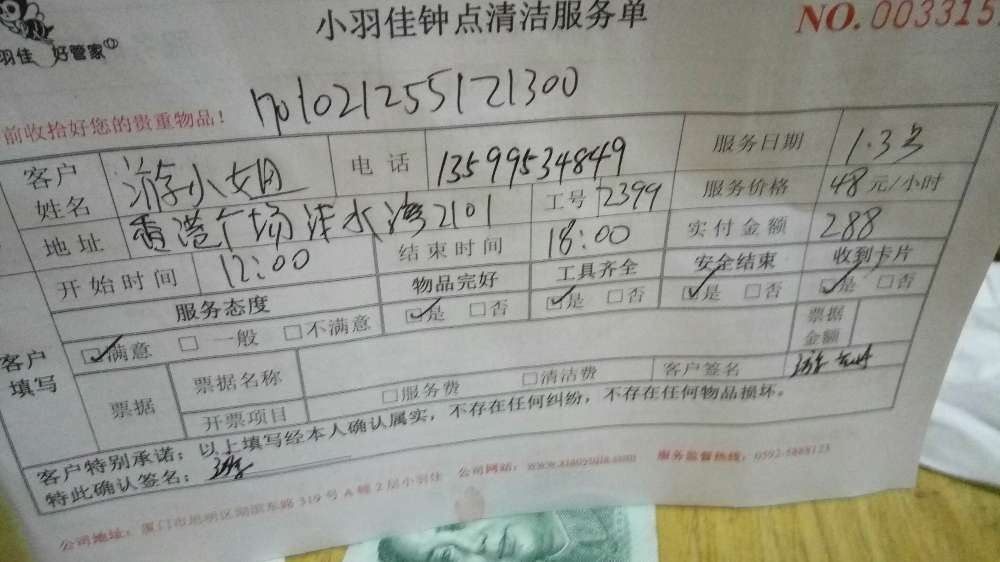 小羽佳钟点清洁服务单
NO. 003315
羽佳 好管家
前收拾好您的贵重物品! 1701021255121300
客户姓名 游小姐 电话 13599534849 服务日期 1.3号
地址 香港广场浅水湾2101 工号 2399 服务价格 48元/小时
开始时间 12:00 结束时间 18:00 实付金额 288
客户填写 服务态度 物品完好 工具齐全 安全结束 收到卡片
☑满意 □一般 □不满意 ☑是 □否 ☑是 □否 ☑是 □否 ☑是 □否
票据 票据名称 票据金额
开票项目 □服务费 □清洁费 客户签名 游
客户特别承诺:以上填写经本人确认属实,不存在任何纠纷,不存在任何物品损坏。
特此确认签名: 游
公司地址:厦门市思明区湖滨东路319号A幢2层小羽佳 公司网站:www.xiaoyujia.com 服务监督热线:0592-5888123